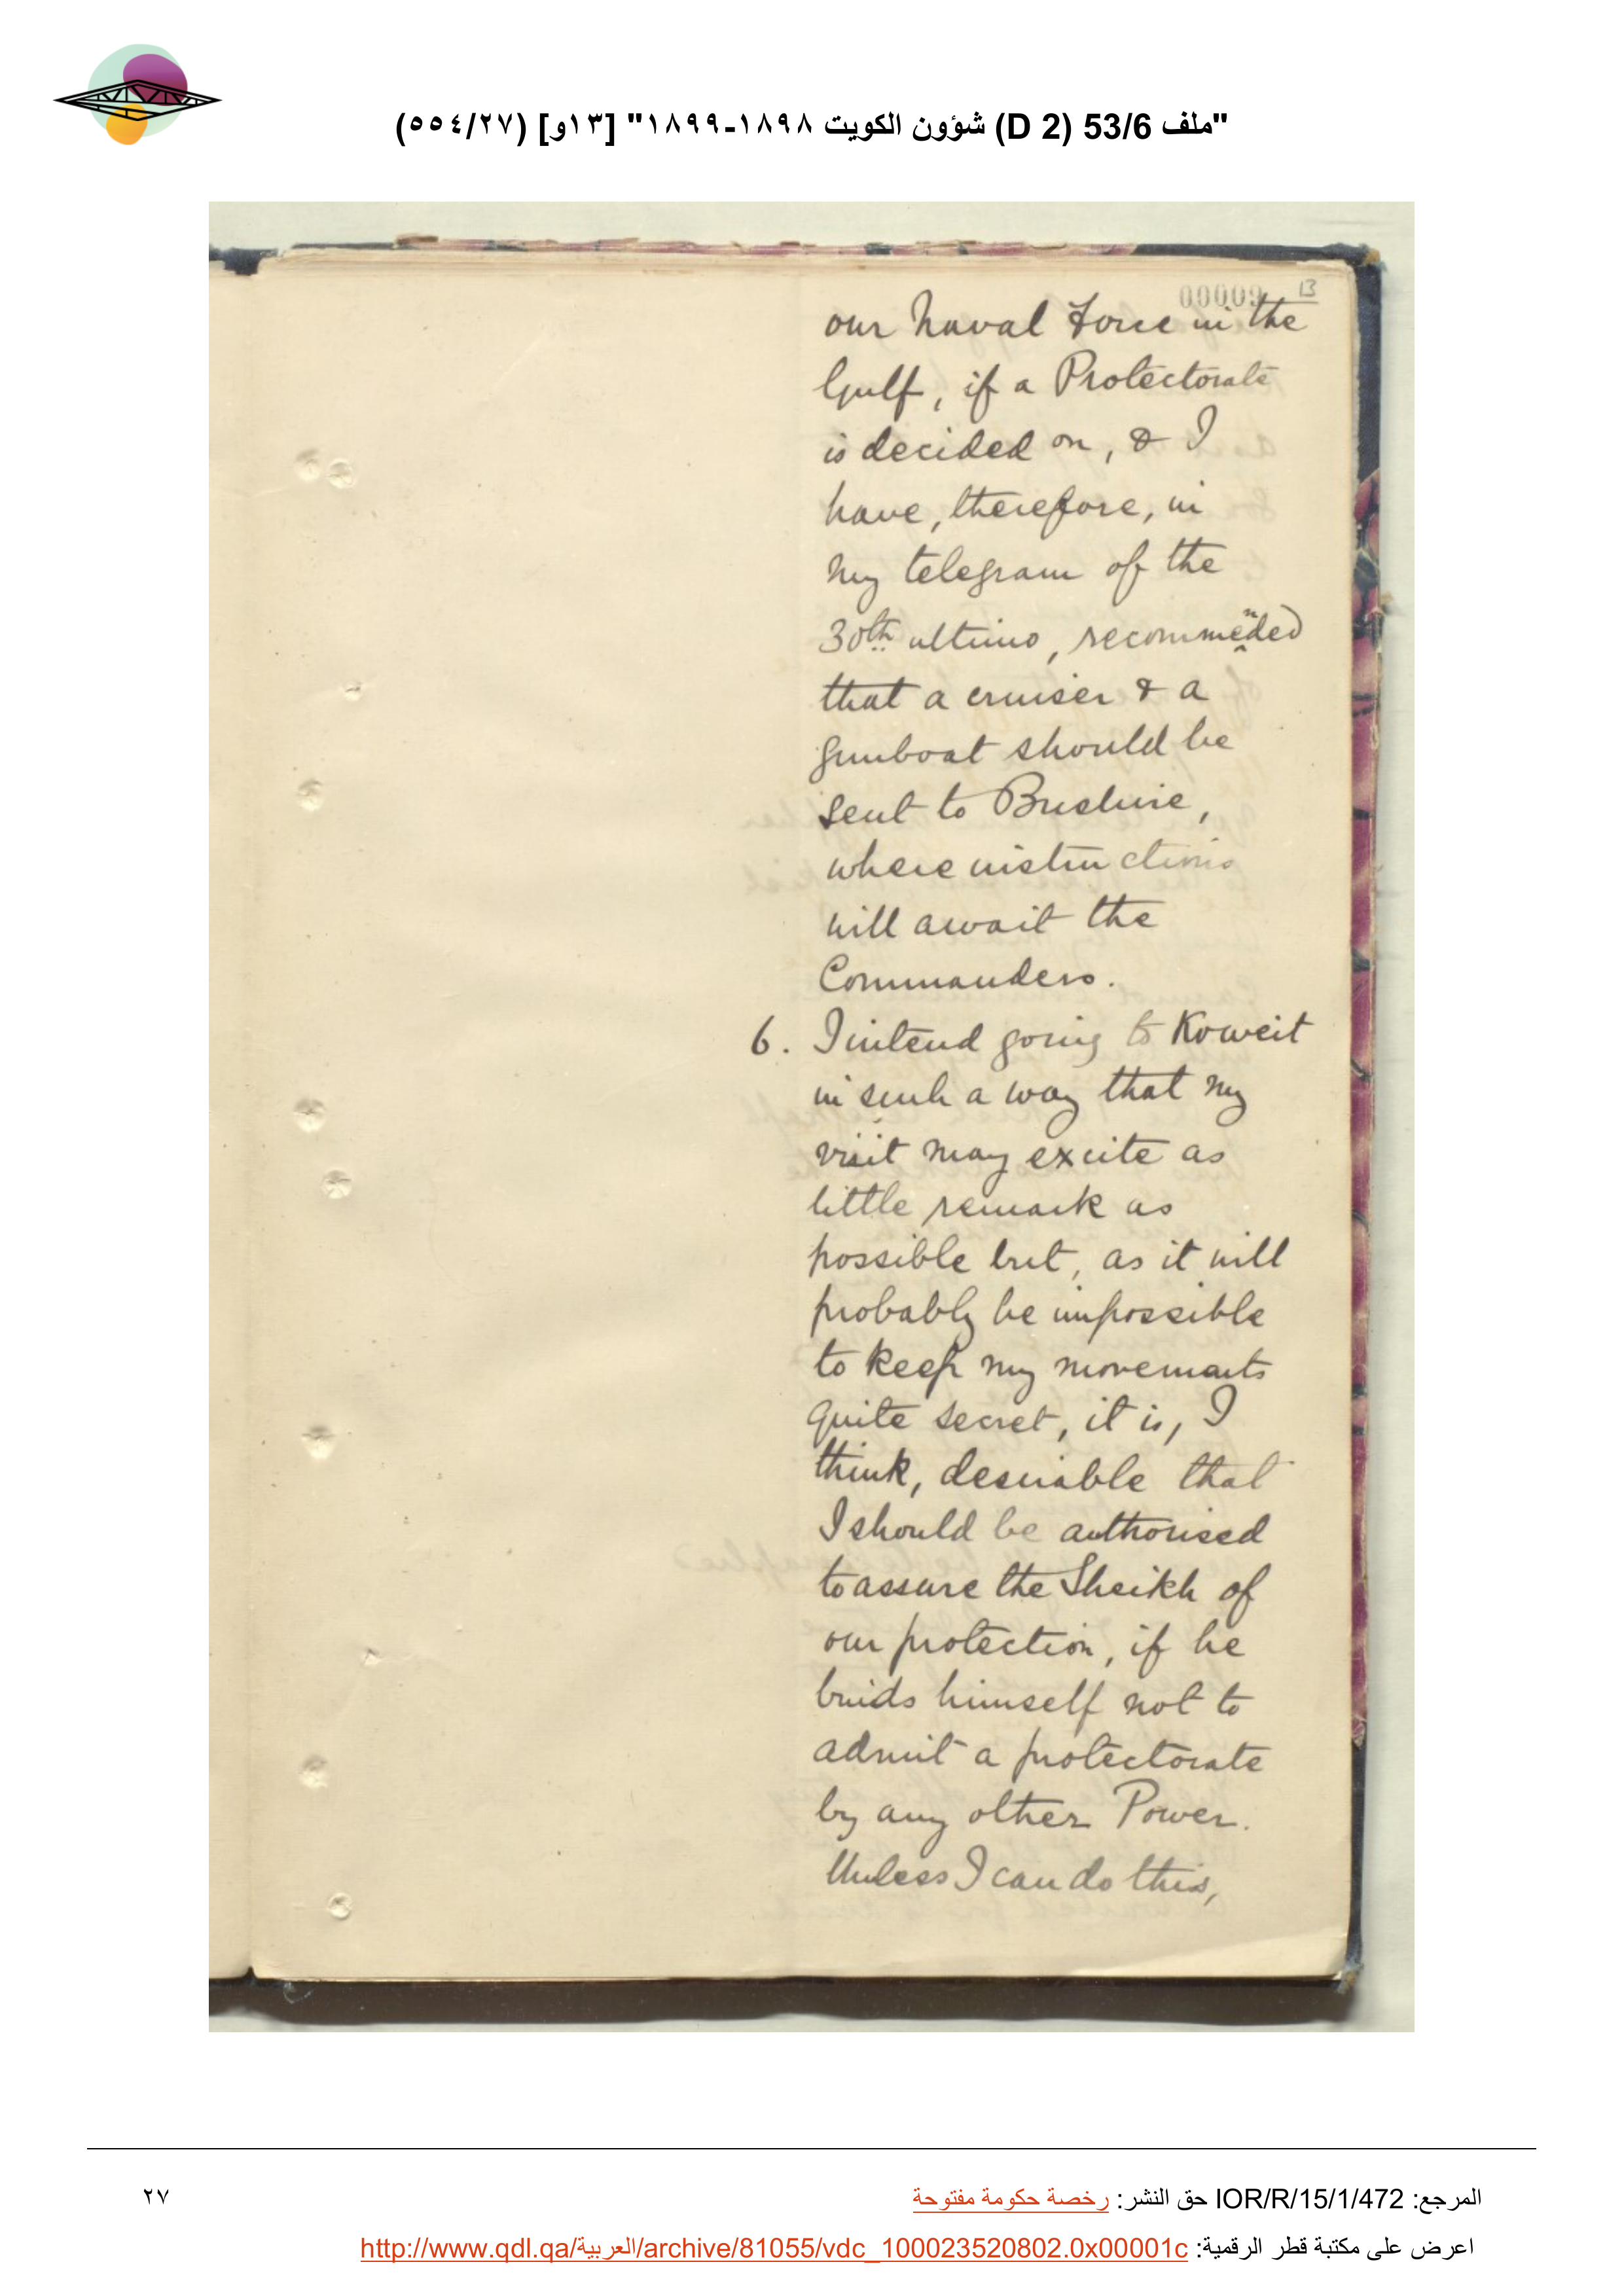 "ملف 53/6 (D 2) شؤون الكويت ١٨٩٨-١٨٩٩" [١٣و] (٥٥٤/٢٧)
00009 13
our Naval Force in the
Gulf, if a Protectorate
is decided on, & I
have, therefore, in
my telegram of the
30th ultimo, recommended
that a cruiser & a
gunboat should be
sent to Bushire,
where instructions
will await the
Commanders.
6. I intend going to Koweit
in such a way that my
visit may excite as
little remark as
possible but, as it will
probably be impossible
to keep my movements
quite secret, it is, I
think, desirable that
I should be authorised
to assure the Sheikh of
our protection, if he
binds himself not to
admit a protectorate
by any other Power.
Unless I can do this,
المرجع: IOR/R/15/1/472 حق النشر: رخصة حكومة مفتوحة
٢٧
اعرض على مكتبة قطر الرقمية: http://www.qdl.qa/العربية/archive/81055/vdc_100023520802.0x00001c